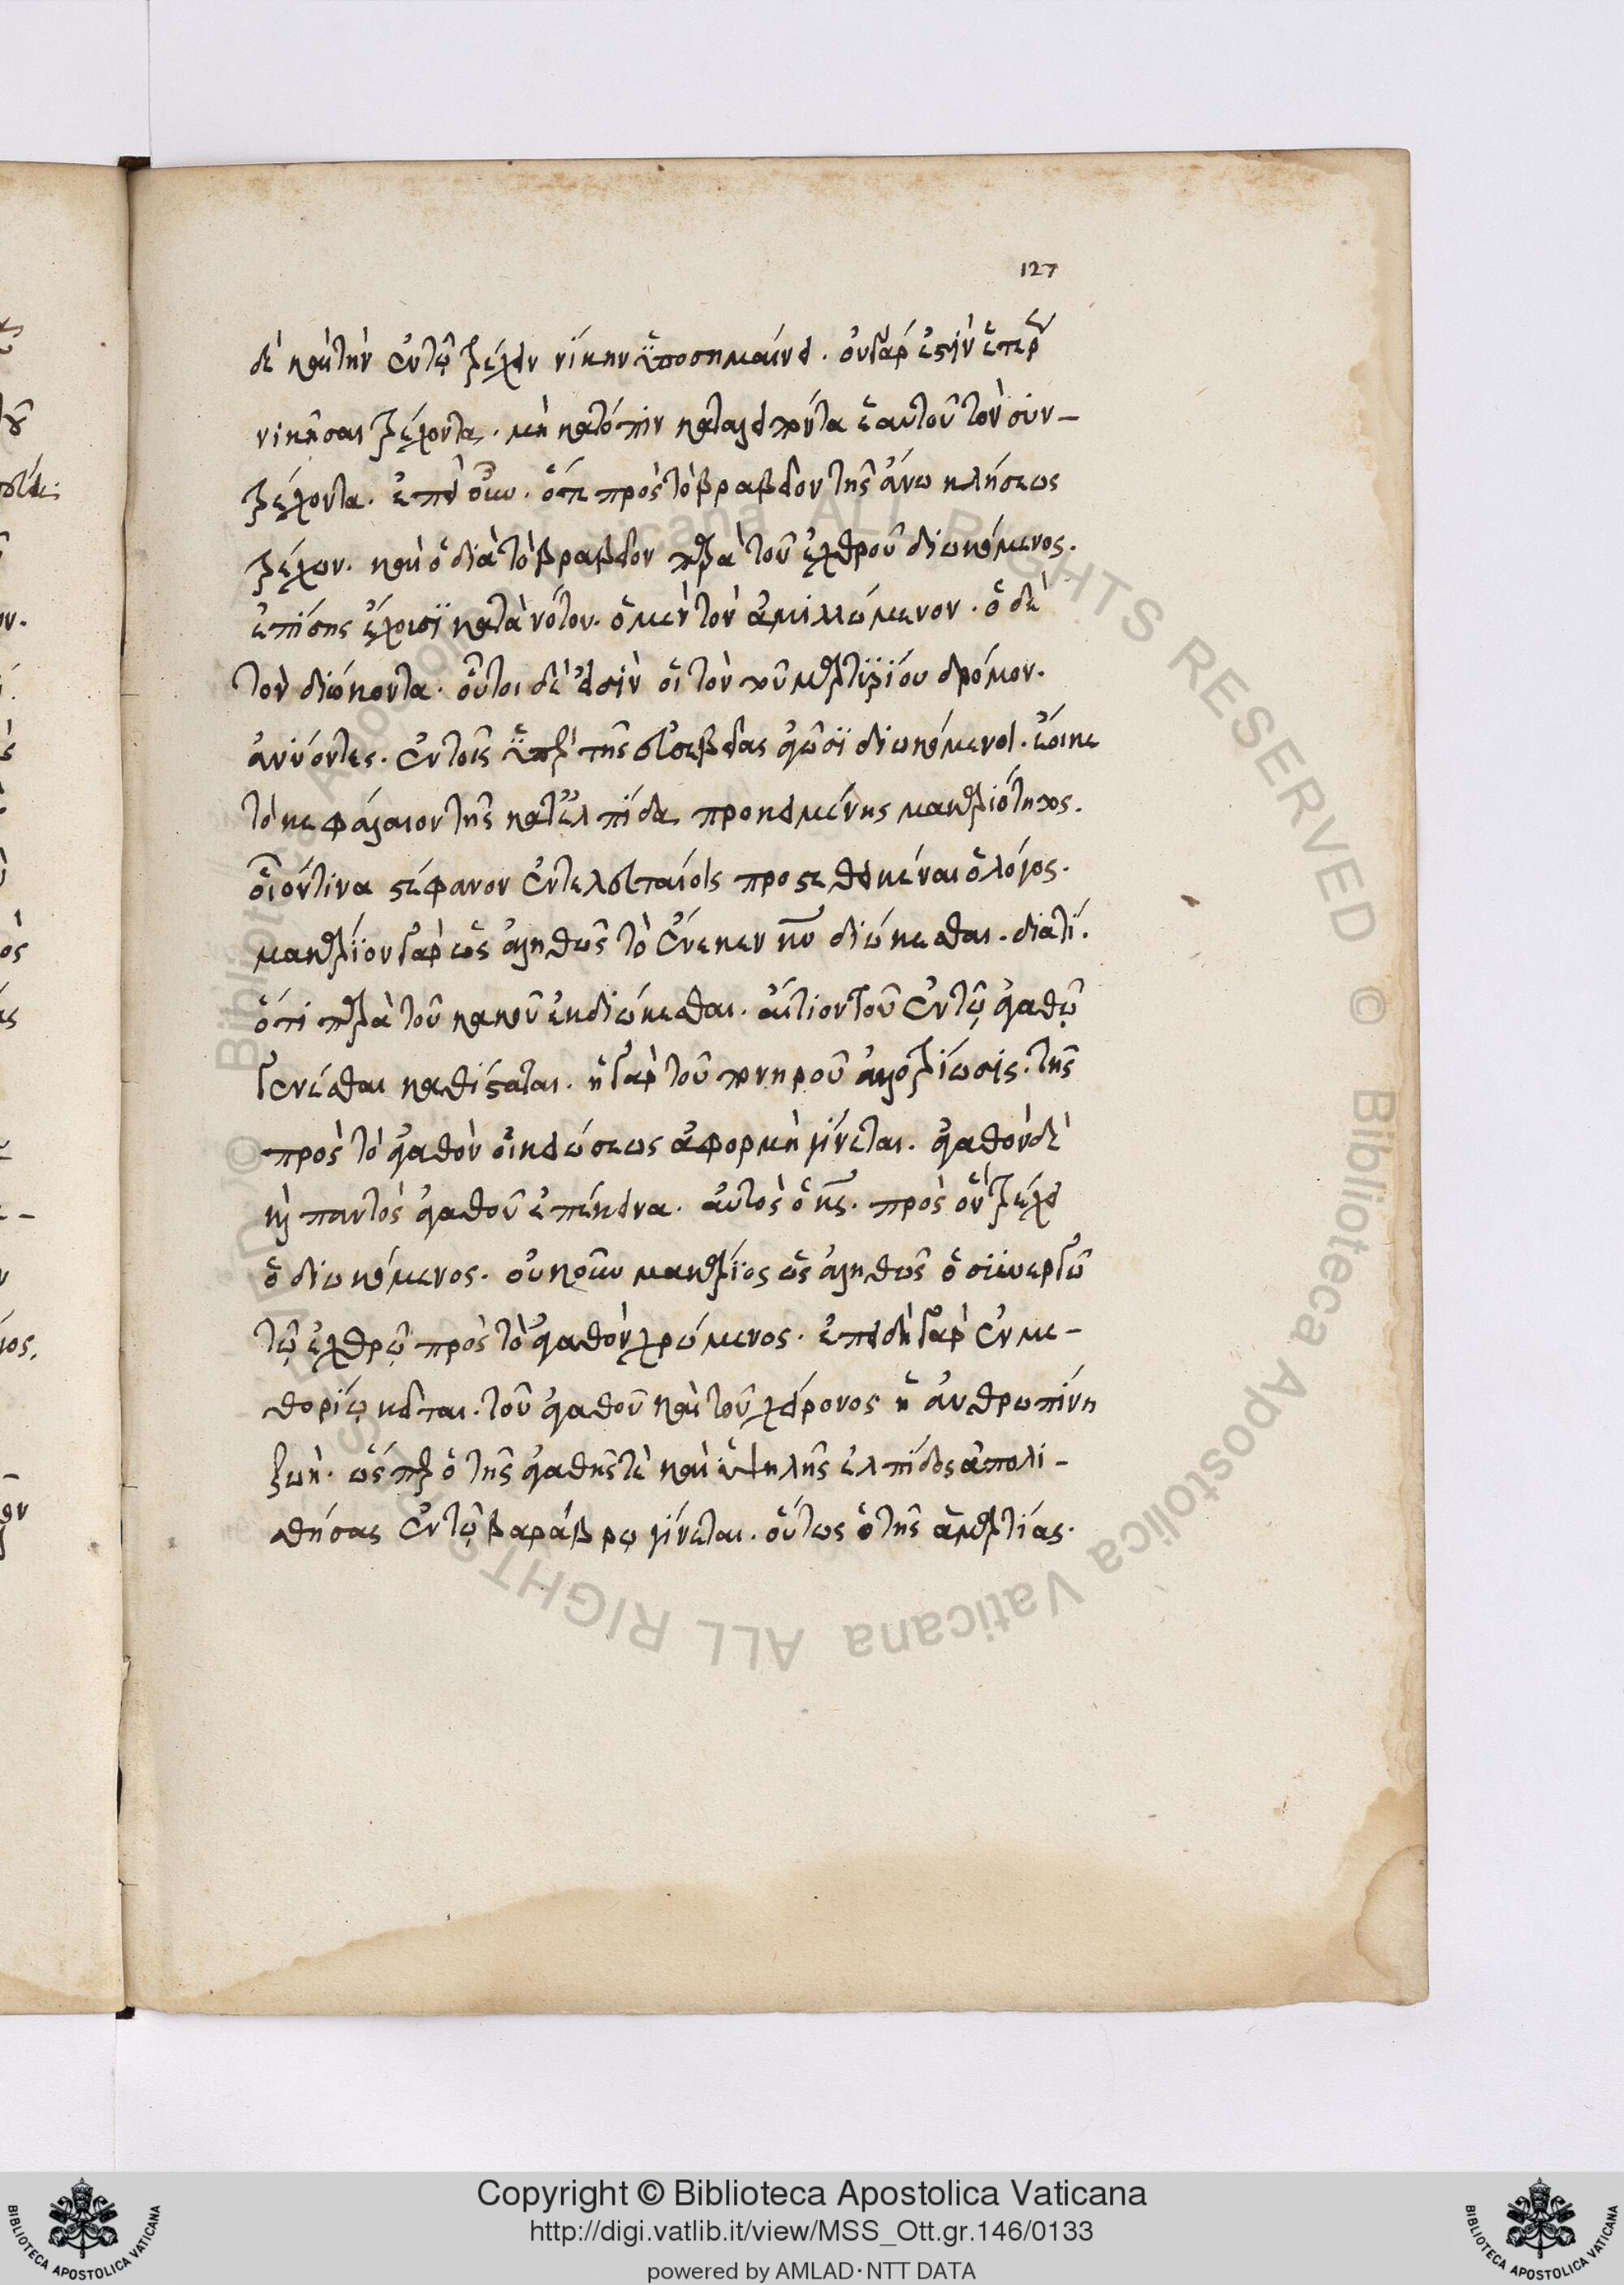 127
δὲ καὶ τὴν ἐν τῷ τρέχειν νίκην ὑποσημαίνει. οὐ γάρ ἐστιν ἕτερον
νικῆσαι τρέχοντα. μὴ κατόπιν καταλειπόντα ἑαυτοῦ τὸν συν-
τρέχοντα. ἐπεὶ οὖν. ὅτε πρὸς τὸ βραβεῖον τῆς ἄνω κλήσεως
τρέχων. καὶ ὁ διὰ τὸ βραβεῖον παρὰ τοῦ ἐχθροῦ διωκόμενος.
ἐπίσης ἔχουσϊ κατὰ νότον. ὁ μὲν τὸν ἁμιλλώμενον. ὁ δὲ
τὸν διώκοντα. οὗτοι δὲ εἰσὶν οἱ τὸν τοῦ μαρτϋρίου δρόμον.
ἀνύοντες. ἐν τοῖς ὑπὲρ τῆς εὐσεβείας ἀγῶσϊ διωκόμενοι. ἔοικε
τὸ κεφάλαιον τῆς κατ' ἐλπίδα προκειμένης μακαριότητος.
οἷόν τινα στέφανον ἐν τελευταίοις προστεθεικέναι ὁ λόγος.
μακάρϊον γὰρ ὡς ἀληθῶς τὸ ἕνεκεν κυ διώκεσθαι. διατί.
ὅτι παρὰ τοῦ κακοῦ ἐκδιώκεσθαι. αἴτιον τοῦ ἐν τῷ ἀγαθῷ
γενέσθαι καθίσταται. ἡ γὰρ τοῦ πονηροῦ ἀλλοτρίωσις. τῆς
πρὸς τὸ ἀγαθὸν οἰκειώσεως ἀφορμὴ γίνεται. ἀγαθὸν δὲ
καὶ παντὸς ἀγαθοῦ ἐπέκεινα. αὐτὸς ὁ κς. πρὸς ὃν τρέχει
ὁ διωκόμενος. οὐκοῦν μακάρϊος ὡς ἀληθῶς ὁ συνεργῷ
τῷ ἐχθρῷ πρὸς τὸ ἀγαθὸν χρώμενος. ἐπειδὴ γὰρ ἐν με-
θορίῳ κεῖται. τοῦ ἀγαθοῦ καὶ τοῦ χείρονος ἡ ἀνθρωπίνη
ζωὴ. ὥσπερ ὁ τῆς ἀγαθῆς τὲ καὶ ὑψηλῆς ἐλπίδος ἀπολι-
σθήσας ἐν τῷ βαράθρῳ γίνεται. οὕτως ὁ τῆς ἁμαρτίας.
Copyright © Biblioteca Apostolica Vaticana
http://digi.vatlib.it/view/MSS_Ott.gr.146/0133
powered by AMLAD·NTT DATA